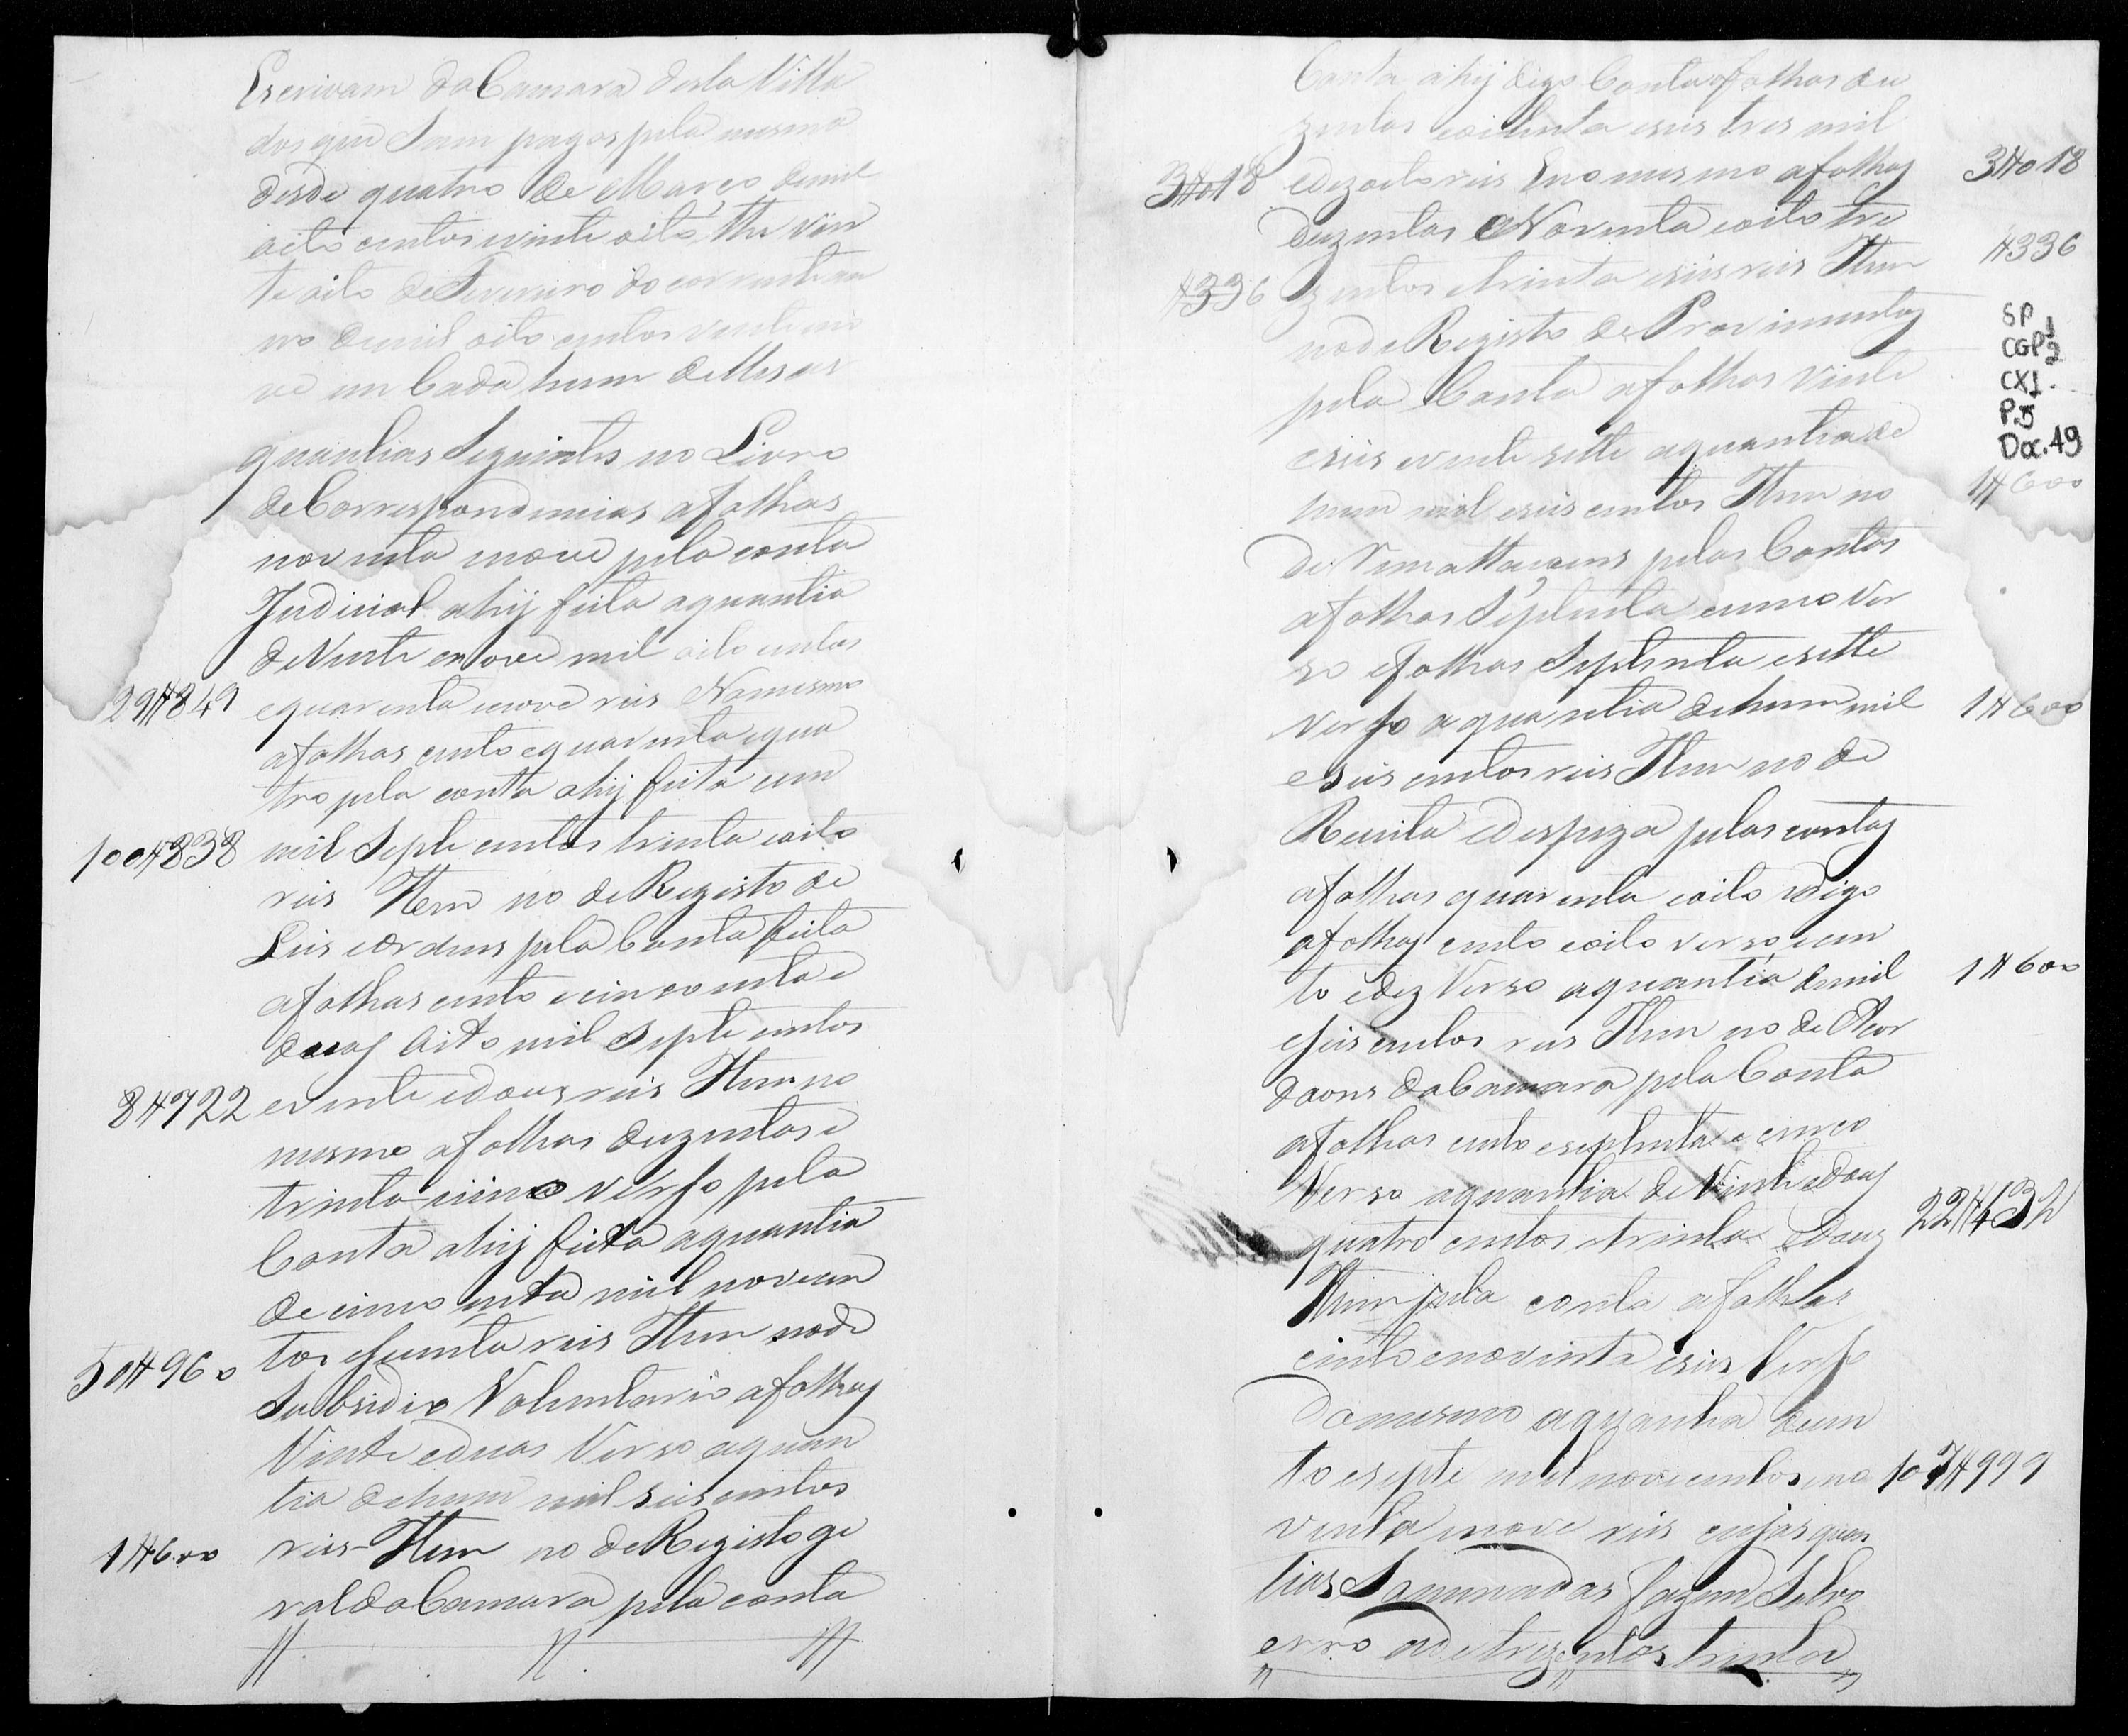 Escrivam da Camara desta Villa
dos que Sam pagos pela mesma
desde quatro de Março de mil
oito centos evinte oito the vin
te oito de Fevereiro do corrente an
no de mil oito centos vinte no
ve em Cada hum de Mesas
quantias Seguintes no Livro
de Correspondencias afolhas
noventa enove pela conta
Judicial ahij feita aquantia
de Vinte enove mil oito centos
29#849 equarenta enove reis No mesmo
afolhas cento equarenta equa
tro pela conta ahij feita cem
100#838 mil Septe centos trinta eoito
reis Item no de Registo de
Leis eordens pela Conta feita
afolhas cento ecincoenta e
duas oito mil Septe centos
8#722 evinte edous reis Item no
mesmo afolhas duzentos e
trinta ecinco verso pela
Conta ahij feita aquantia
de cinco enta mil novecen
50#960 tos eSecenta reis Item no de
Subsidio Voluntario afolhas
Vinte eduas Verso aquan
tia dehum mil seiscentos
1#600 reis Item no de Registo ge
ral da Camara pela conta
Conta ahij digo Conta afolhas du
zentos eoitenta eseis tres mil
3#018 edezoito reis Eno mesmo afolhas 3#018
duzentos eNoventa eoito tre
#336 zentos etrinta eseis reis Item #336
no de Registo de Provimentos
pela Conta afolhas Vinte
eseis evinte sette aquantia de
hum mil eseis centos Item no 1#600
de Remattacoens pelas Contas
afolhas Septenta ecinco Ver
so efolhas Septenta esette
Verso aquantia dehum mil 1#600
eSeis centos reis Item no de
Receita edespeza pelas contas
afolhas quarenta eoito digo
afolhas cento eoito verso ecen
to edez Verso aquantia de mil 1#600
eSeis centos reis Item no de Acor
daons da Camara pela Conta
afolhas cento eseptenta e cinco
Verso aquantia de Vinte edous
quatro centos etrinta edous 22#432
Item pela conta afolhas
cento enoventa eseis Verso
do mesmo aquantia de cen
to esepte mil nove centos eno 107#999
venta enove reis cujas quan
tias Sommadas fazem Salvo
erro ade trezentos trinta
SP
CGP2
CX1.
P.5
Doc.49